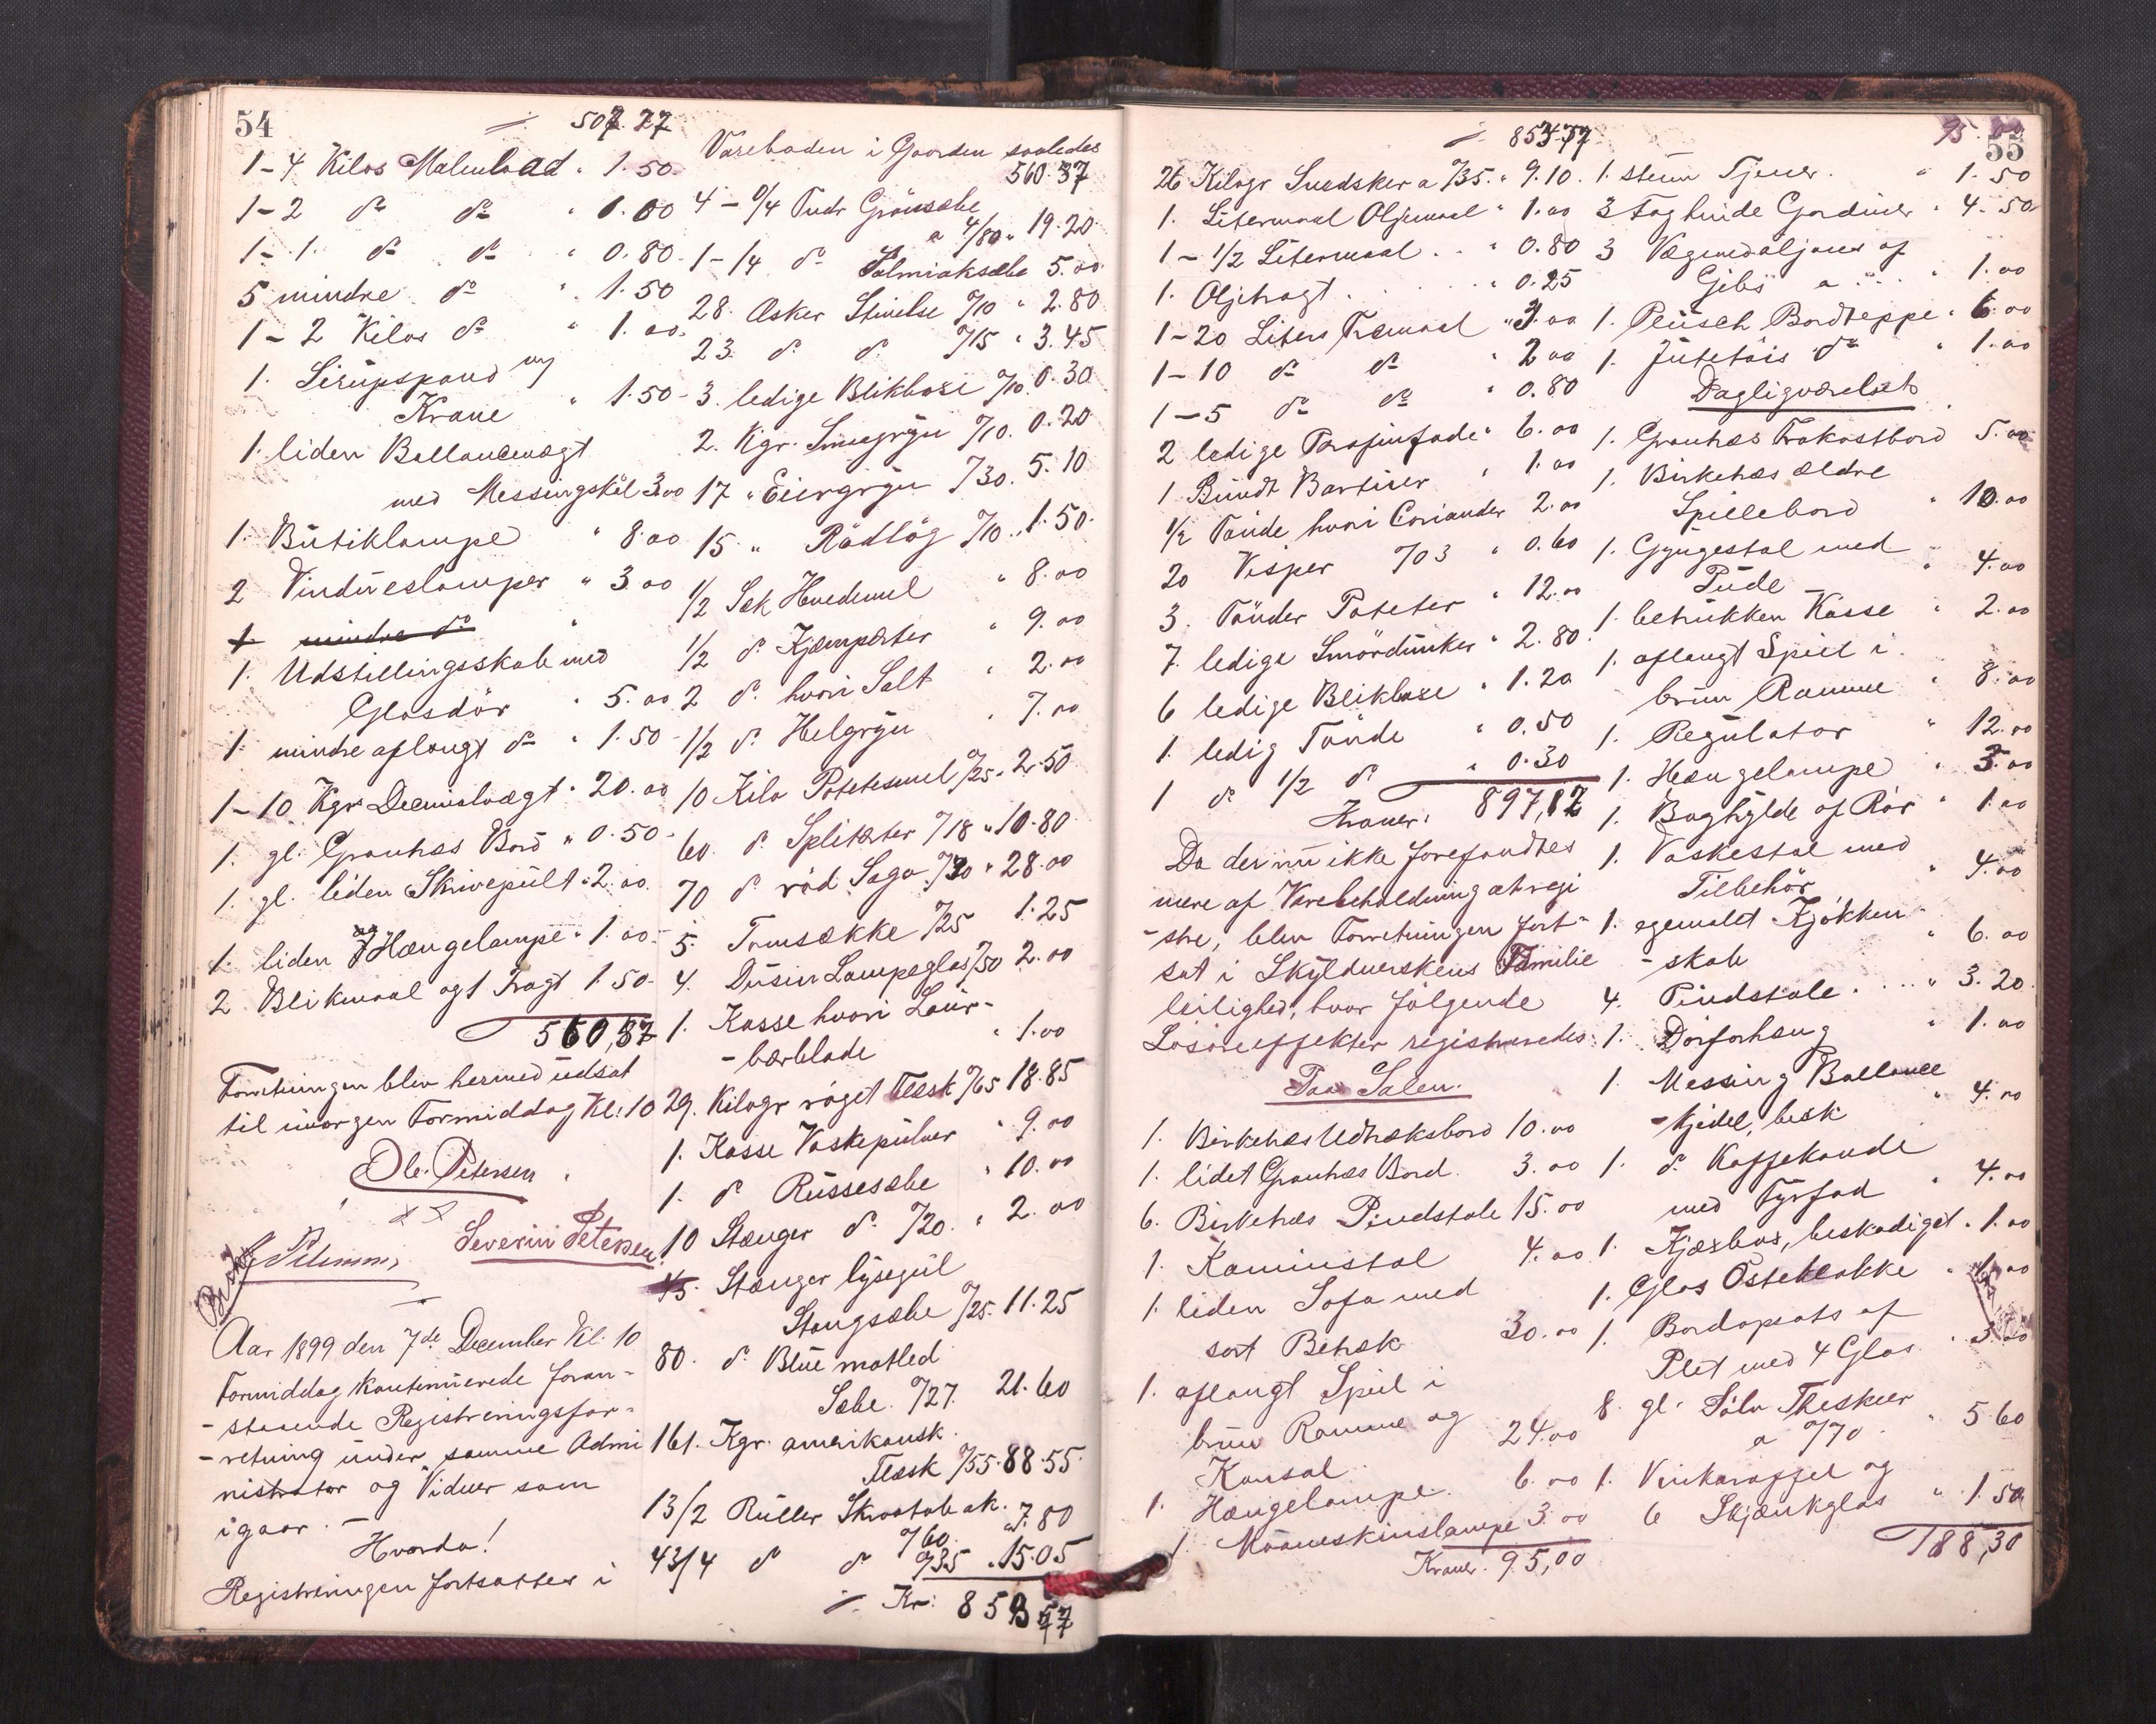 54
507.27
1-4 Kilos Malmlod " 1.50
1-2 do do " 1.00
1-1. do do " 0.80
5 mindre do " 1.50
1-2 Kilos do " 1.00
1. Sirupspand m/
Krane " 1.50
1. liden Ballancevægt
med Messingskål 3.00
1. Butiklampe " 8.00
2 Vindueslamper " 3.00
1. mindre do "
1. Udstillingsskab med
Glasdör " 5.00
1. mindre aflangt do " 1.50
1-10 Kgr. Decimalvægt " 20.00
1. gl. Granhæs Bord " 0.50
1. gl. liden Skrivepult " 2.00
1. liden Hængelampe " 1.00
2 Blikmaal og 1 Tragt 1.50
560,37
Forretningen blev hermed udsat
til imorgen Formiddag Kl: 10
Ole Petersen
Severin Petersen
Aar 1899 den 7de December Kl. 10
Formiddag kontinuerede foran-
-staaende Registreringsfor-
-retning under samme Admi
nistrator og Vidner som
igaar. -
Hvorda!
Registreringen fortsattes i
Vareboden i Gaarden saaledes
560.37
4-0/4 Tndr Grönsæbe
a 4/80 " 19.20
1-1/4 do Salmiaksæbe 5.00
28. Æsker Stivelse a/10 " 2.80
23. do do a/15 " 3.45
3. ledige Blikbaxe a/10 0.30
2. Kgr. Smaagryn a/10. 0.20
17 " Eiergryn a/30. 5.10
15 " Rödlög a/10 " 1.50
1/2 Sæk Hvedemel " 8.00
1/2 do Kjæmpeerter " 9.00
2 do hvori Salt " 2.00
1/2 do Helgryn " 7.00
10 Kilo Potetesmel a/25 " 2.50
60. do Spliterter a/18 " 10.80
70 do röd Sago a/30 " 28.00
5. Tomsække a/25 1.25
4. Dusin Lampeglas a/50 2.00
1. Kasse hvori Laur-
-bærblade " 1.00
29. Kilogr röget Flesk a/65 18.85
1. Kasse Vaskepulver " 9.00
1. do Russesæbe " 10.00
10 Stænger do a/20. " 2.00
45. Stænger lysegul
Stangsæbe a/25. 11.25
80. do Blue motled
Sæbe. a/27. 21.60
161. Kgr. amerikansk
Flæsk a/55. 88.55
13/2 Ruller Skraatobak.
a/60. " 7.80
43/4 do do a/35 " 15.05
Kr: 853 77
55
853.77
26 Kilogr Svedsker a a/35. " 9.10
1. Litermaal Oljemaal " 1.00
1-1/2 Litermaal " 0.80
1. Oljetragt " 0.25
1-20 Liters Træmaal " 3.00
1-10 do do " 2.00
1-5 do do " 0.80
2 ledige Parafinfade " 6.00
1 Bundt Bastiser " 1.00
1/2 Tönde hvori Coriander 2.00
20 Visper a/03 " 0.60
3. Tönder Poteter " 12.00
7. ledige Smördunker " 2.80
6 ledige Blikbaxe " 1.20
1. ledig Tönde " 0.50
1 do 1/2 do " 0.30
Kroner: 897,12
Da der nu ikke forefandtes
mere af Varebeholdning at regi
-stre, blev Forretningen fort-
sat i Skyldnerskens Familie
leilighed, hvor fölgende
Lösöreeffekter registreredes:
Paa Salen.
1. Birkehæs Udtræksbord 10.00
1. lidet Granhæs Bord 3.00
6. Birkehæs Pindstole 15.00
1. Kaminstol 4.00
1. liden Sofa med
sort Betræk 30.00
1. aflangt Speil i
brun Ramme og
Konsol 24.00
1. Hængelampe 6.00
1. Maaneskinslampe 3.00
Kroner: 95,00
95.00
1. stum Tjener. " 1.50
3 Fag hvide Gardiner " 4.50
3 Vægmedaljoner af
Gibs a " 1.00
1. Plüsch Bordteppe " 6.00
1. Jutetöis do " 1.00
Dagligværelset
1. Granhæs Frokostbord 5.00
1. Birkehæs ældre
Spillebord " 10.00
1. Gyngestol med
Pude " 4.00
1. betrukken Kasse " 2.00
1. aflangt Speil i
brun Ramme " 8.00
1. Regulator " 12.00
1. Hængelampe " 5.00
1. Boghylde af Rör " 1.00
1. Vaskestol med
Tilbehör " 4.00
1. egemalet Kjökken-
-skab " 6.00
4. Pindstole " 3.20
1. Dörforhæng " 1.00
1. Messing Ballance
-kjedel, læk " 4.00
1. do Kaffekande
med Fyrfad " 4.00
1. Kjæxbox, beskadiget " 1.00
1. Glas Osteklokke " 1.00
1. Bordopsats af
Plet med 4 Glas " 3.00
8. gl. Sölv Theskeer
a a/70 " 5.60
1. Vinkaraffel og
6 Skjænkglas " 1.50
188,30